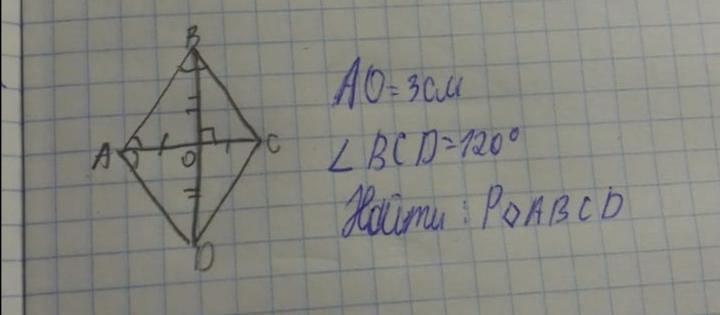 B
AO=3см
∠BCD=120°
A O C
Найти: P◇ABCD
D